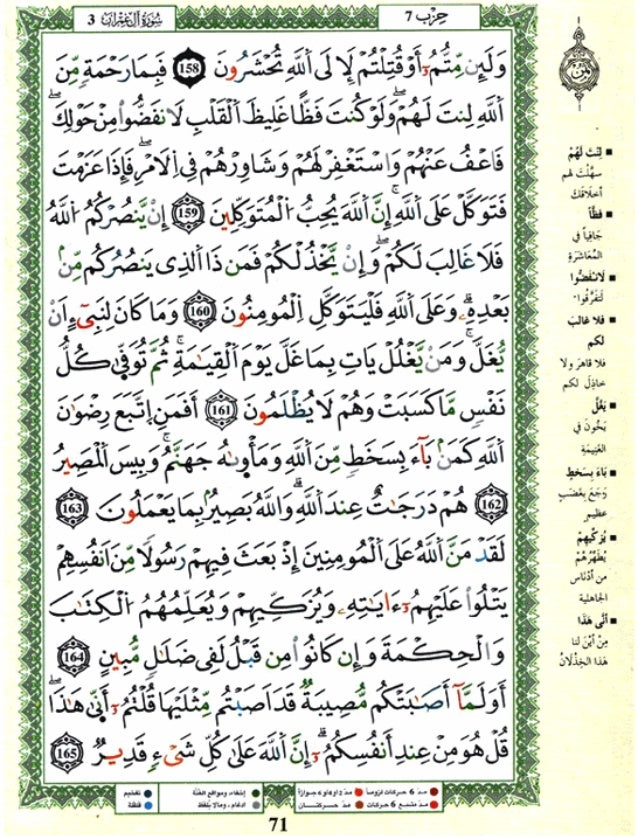 حِزْب 7
سُورَةُ آلِ عِمْرَانَ 3
وَلَئِن مِّتُّمُۥٓ أَوْ قُتِلْتُمْ لَإِلَى اَللَّهِ تُحْشَرُونَ 158 فَبِمَا رَحْمَةٖ مِّنَ
اَللَّهِ لِنتَ لَهُمْ وَلَوْ كُنتَ فَظّاً غَلِيظَ اَلْقَلْبِ لَانفَضُّواْ مِنْ حَوْلِكَ
فَاعْفُ عَنْهُمْ وَاسْتَغْفِرْ لَهُمْ وَشَاوِرْهُمْ فِي اِلَامْرِ فَإِذَا عَزَمْتَ
فَتَوَكَّلْ عَلَى اَللَّهِ إِنَّ اَللَّهَ يُحِبُّ اُلْمُتَوَكِّلِينَ 159 إِنْ يَّنصُرْكُمُ اُللَّهُ
فَلَا غَالِبَ لَكُمْ وَإِنْ يَّخْذُلْكُمْ فَمَن ذَا اَلذِي يَنصُرُكُم مِّنۢ
بَعْدِهِۦ وَعَلَى اَللَّهِ فَلْيَتَوَكَّلِ اِلْمُومِنُونَ 160 وَمَا كَانَ لِنَبِيٓءٍ اَنْ
يُّغَلَّ وَمَنْ يَّغْلُلْ يَاتِ بِمَا غَلَّ يَوْمَ اَلْقِيَٰمَةِ ثُمَّ تُوَفّٰى كُلُّ
نَفْسٖ مَّا كَسَبَتْ وَهُمْ لَا يُظْلَمُونَ 161 أَفَمَنِ اِتَّبَعَ رِضْوَٰنَ
اَللَّهِ كَمَنۢ بَآءَ بِسَخَطٖ مِّنَ اَللَّهِ وَمَأْوٰىٰهُ جَهَنَّمُ وَبِيسَ اَلْمَصِيرُ
162 هُمْ دَرَجَٰتٌ عِندَ اَللَّهِ وَاللَّهُ بَصِيرُۢ بِمَا يَعْمَلُونَ 163
لَقَدْ مَنَّ اَللَّهُ عَلَى اَلْمُومِنِينَ إِذْ بَعَثَ فِيهِمْ رَسُولاٗ مِّنَ اَنفُسِهِمْ
يَتْلُواْ عَلَيْهِمُۥٓ ءَايَٰتِهِۦ وَيُزَكِّيهِمْ وَيُعَلِّمُهُمُ اُلْكِتَٰبَ
وَالْحِكْمَةَ وَإِن كَانُواْ مِن قَبْلُ لَفِي ضَلَٰلٖ مُّبِينٍ 164
أَوَلَمَّآ أَصَٰبَتْكُم مُّصِيبَةٞ قَدَ اَصَبْتُم مِّثْلَيْهَا قُلْتُمُۥٓ أَنّٰى هَٰذَا
قُلْ هُوَ مِنْ عِندِ أَنفُسِكُمُۥٓ إِنَّ اَللَّهَ عَلَىٰ كُلِّ شَيْءٖ قَدِيرٞ 165
ثُمُن
■ لِنْتَ لَهُمْ
سهَّلْتَ لهم
أخلاقك
■ فَظّاً
جَافِياً في
المُعَاشَرَةِ
■ لَانْفَضُّوا
لَتَفَرَّقُوا
■ فلا غالبَ
لكم
فلا قاهرَ ولا
خاذِلَ لكم
■ يَغُلَّ
يَخُونَ في
الغنِيمَةِ
■ بَاءَ بسَخطٍ
رَجَعَ بغضَبٍ
عظيمٍ
■ يُزَكِّيهِمْ
يُطَهِّرُهُمْ
من أدْنَاسِ
الجاهلية
■ أنَّى هَذَا
مِنْ أيْنَ لنا
هَذا الخِذْلَانُ
مدّ 6 حركات لزوماً مدّ 2 أو 4 أو 6 جوازاً إخفاء، ومواقع الغنّة تفخيم
مدّ مشبع 6 حركات مدّ حركتان إدغام، وما لا يُلفَظ قلقلة
71